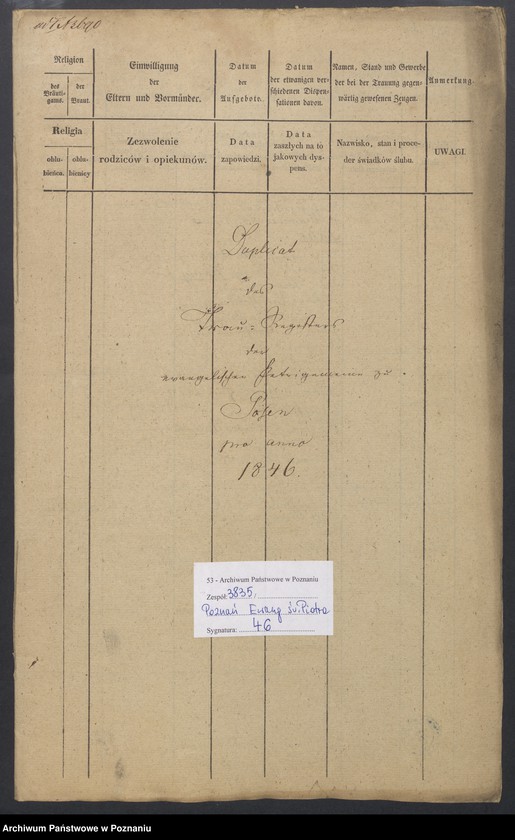 Religion
des Bräuti-
gams.
der
Braut.
Einwilligung
der
Eltern und Vormünder.
Datum
der
Aufgebote.
Datum
der etwanigen ver-
schiedenen Dispen-
sationen davon.
Namen, Stand und Gewerbe
der bei der Trauung gegen-
wärtig gewesenen Zeugen.
Anmerkung
Religia
oblu-
bieńca.
oblu-
bienicy
Zezwolenie
rodziców i opiekunów.
Data
zapowiedzi.
Data
zaszłych na to
jakowych dys-
pens.
Nazwisko, stan i proce-
der świadków ślubu.
UWAGI.
Duplicat
des
Trau-Registers
der
evangelischen Petrigemeine zu
Posen
pro anno
1846.
53 - Archiwum Państwowe w Poznaniu
Zespół: 3835,
Poznań Ewang św. Piotra
Sygnatura: 46
Archiwum Państwowe w Poznaniu